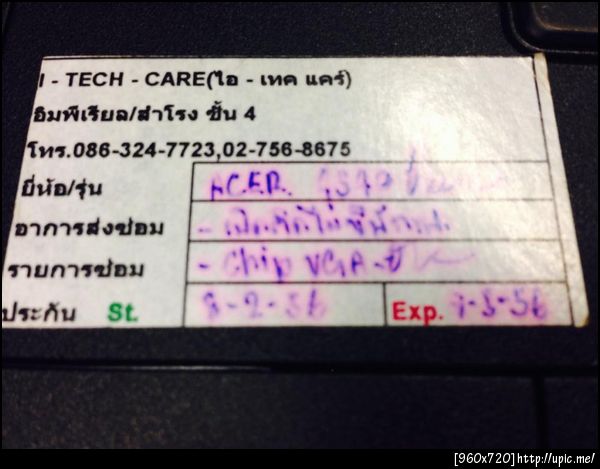 I - TECH - CARE(ไอ - เทค แคร์)
อิมพีเรียล/สำโรง ชั้น 4
โทร.086-324-7723,02-756-8675
ยี่ห้อ/รุ่น ACER
อาการส่งซ่อม -
รายการซ่อม - chip VGA
ประกัน St. 8-2-56 Exp.
[960x720]http://upic.me/